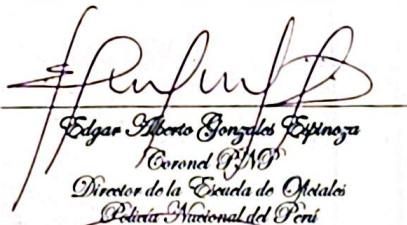 Edgar Alberto Gonzales Espinoza
Coronel PNP
Director de la Escuela de Oficiales
Policía Nacional del Perú